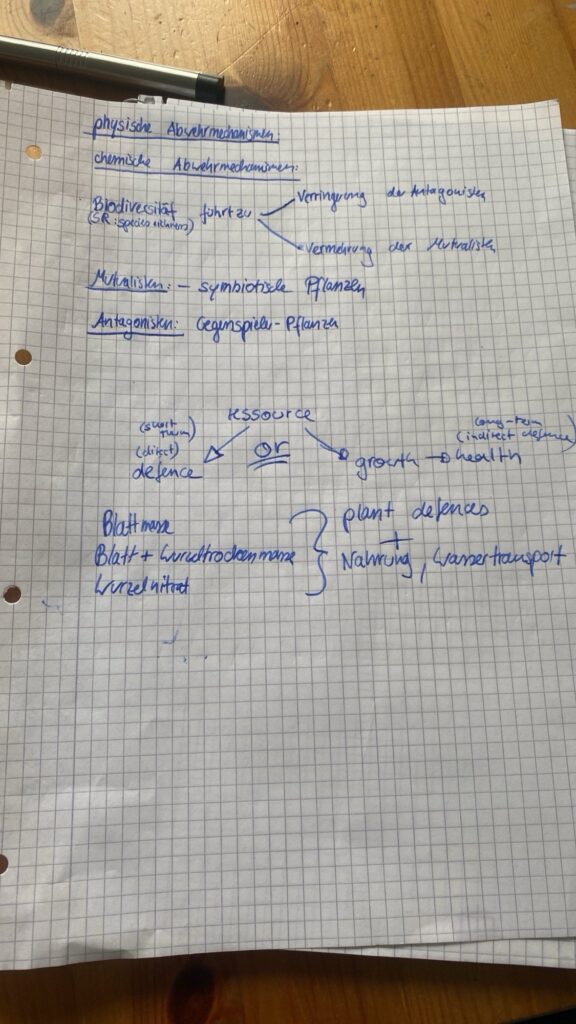 physische Abwehrmechanismen:
chemische Abwehrmechanismen:
Biodiversität führt zu
(SR: species richness)
Verringerung der Antagonisten
Vermehrung der Mutualisten
Mutualisten: - symbiotische Pflanzen
Antagonisten: Gegenspieler-Pflanzen
ressource
OR
(short term)
(direct)
defence
growth → health
long-term
(indirect defence)
Blattmasse
Blatt + Wurzeltrockenmasse
Wurzelnitrat
plant defences
+
Nahrung, Wassertransport